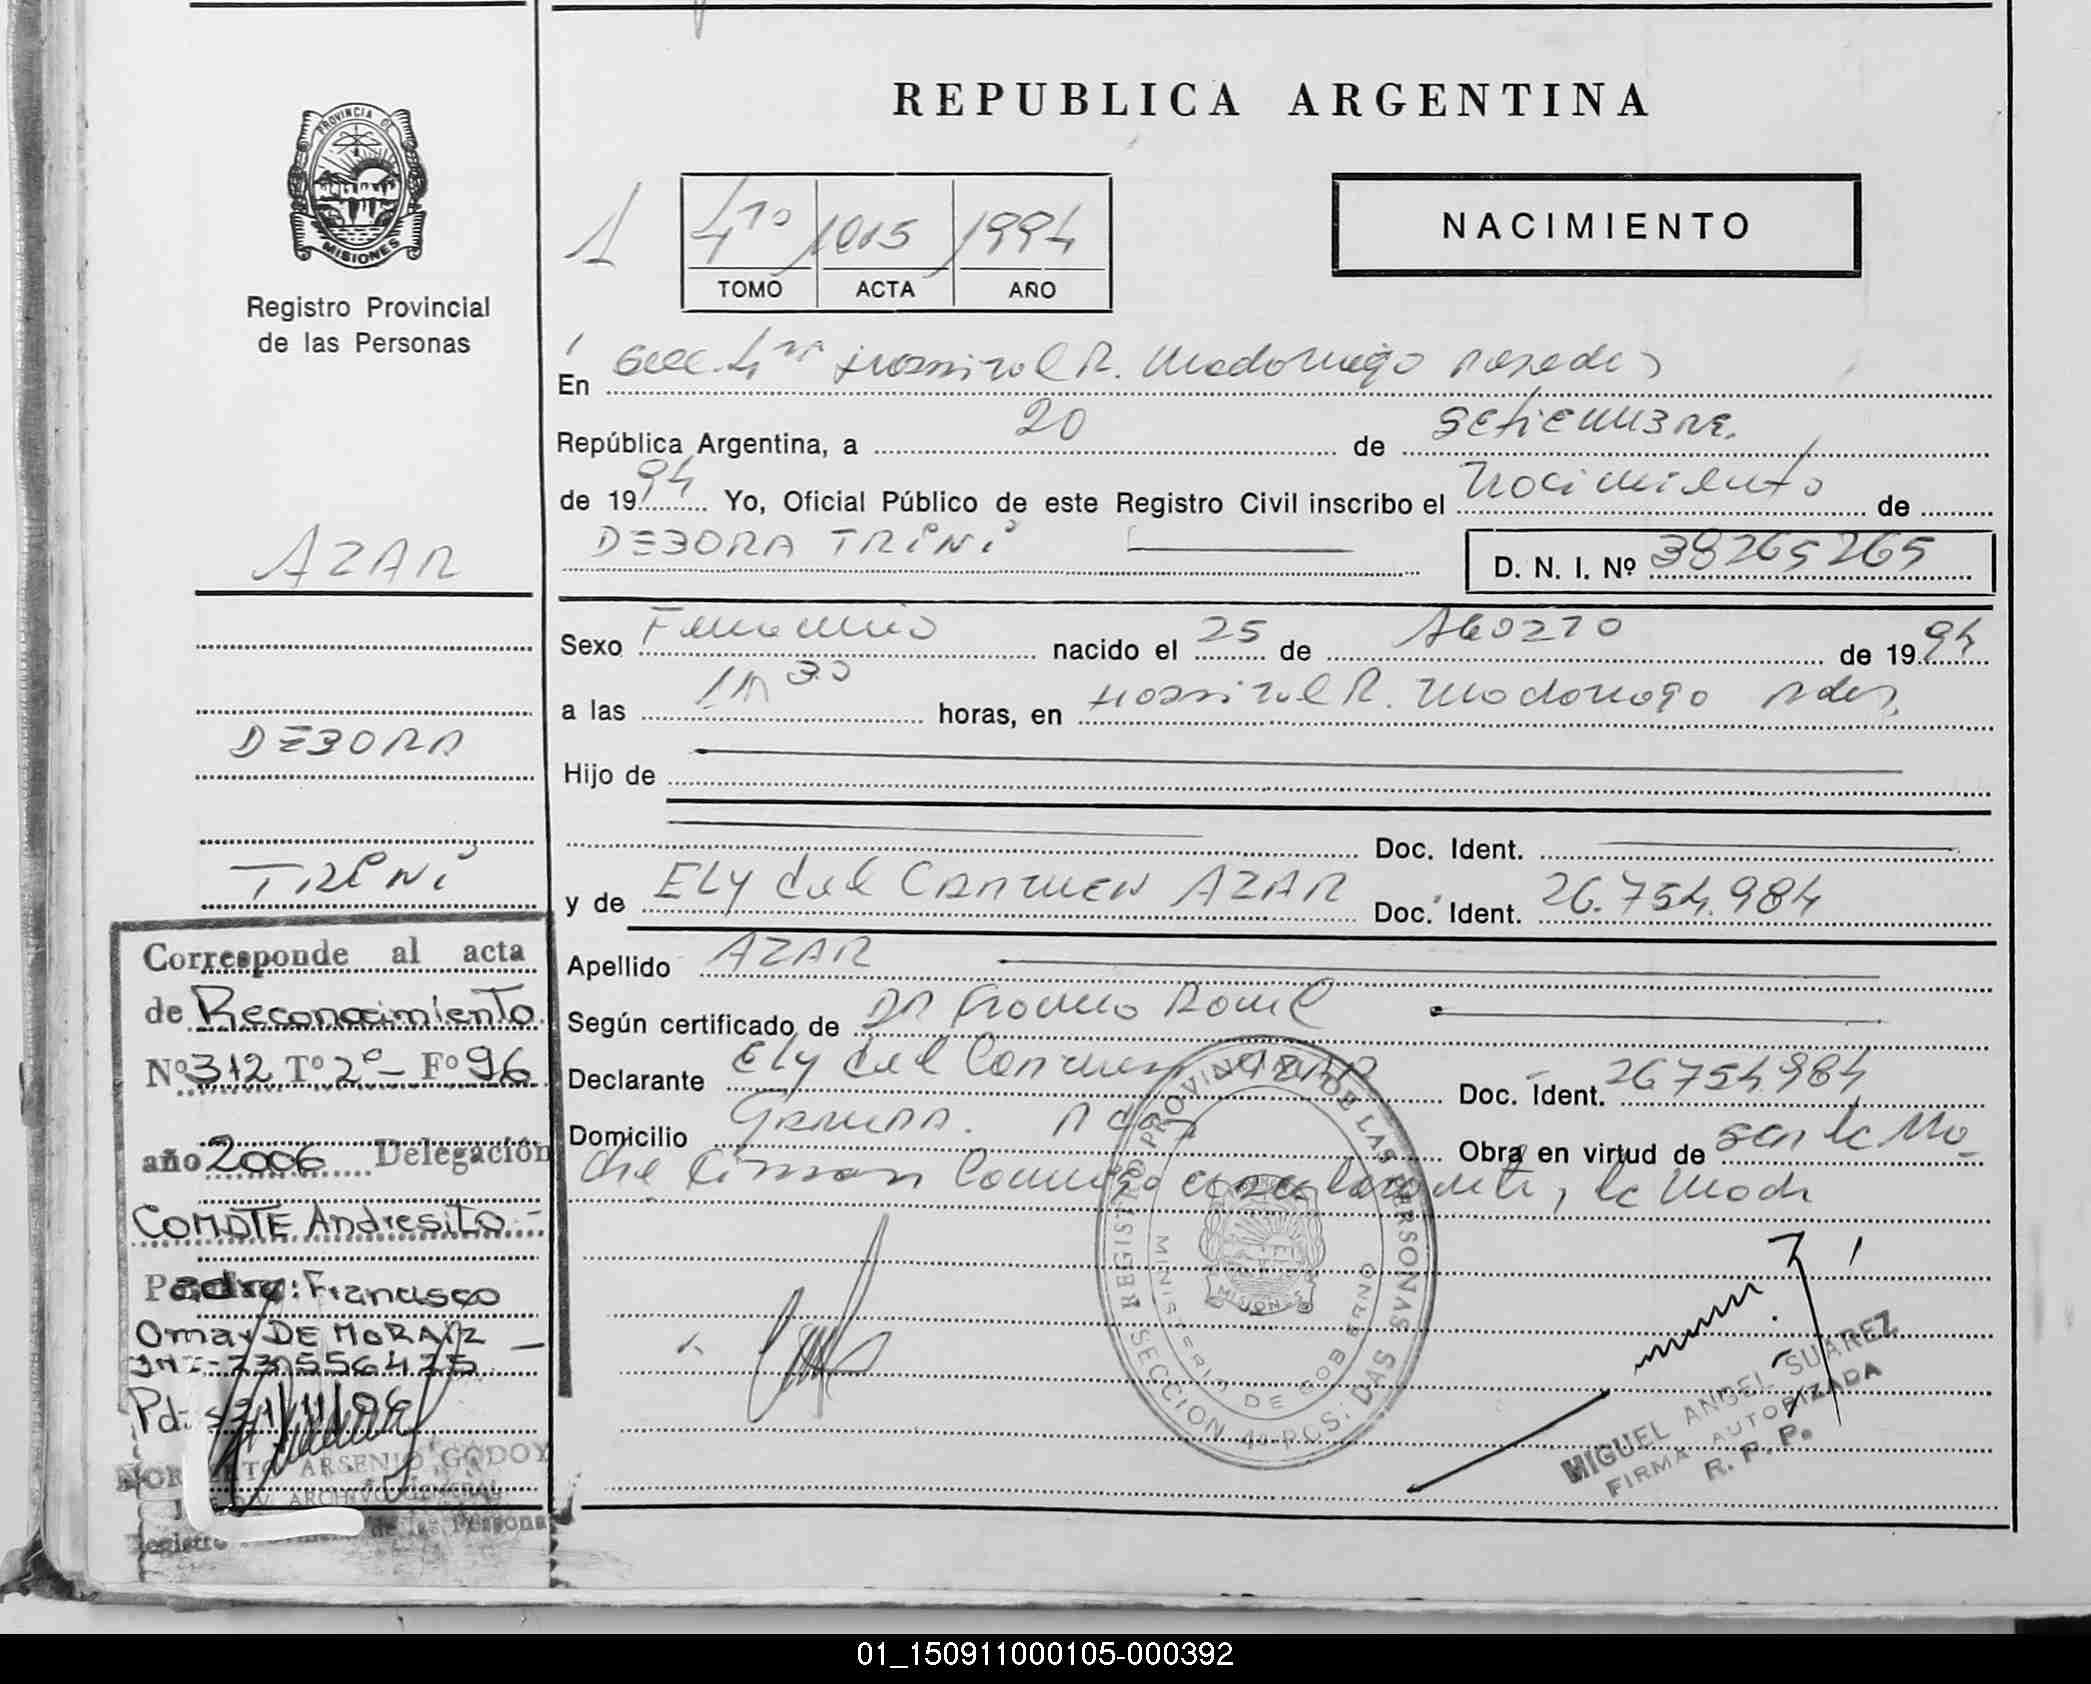 REPUBLICA ARGENTINA
PROVINCIA DE
MISIONES
Registro Provincial
de las Personas
1
4to 1015 1994
TOMO ACTA AÑO
NACIMIENTO
En Secc. 4ta Hospital R. Madariaga Posadas
República Argentina, a 20 de SEtiEMBRE.
de 1994 Yo, Oficial Público de este Registro Civil inscribo el Nacimiento de
DEBORA TRINI
D. N. I. Nº 38265265
AZAR
DEBORA
TRINI
Sexo Femenino nacido el 25 de AGOSTO de 1994
a las 11h 30 horas, en Hospital R. Madariaga Pdas,
Hijo de
Doc. Ident.
y de ELY del CARMEN AZAR Doc. Ident. 26.754.984
Apellido AZAR
Según certificado de DR Raul
Declarante Ely del Carmen AZAR Doc. Ident. 26754.984
Domicilio Garupa. Pdas Obra en virtud de ser la Ma-
dre Firman Conmigo, la Madre
Corresponde al acta
de Reconocimiento
Nº 312 Tº 2º - Fº 96
año 2006 Delegación
COMDTE Andresito.-
Padre: Francisco
Omar DE MORAIZ
Pd:
ARSENIO GODOY
ARCHIVO GENERAL
de las Personas
REGISTRO PROVINCIAL DE LAS PERSONAS
MINISTERIO DE GOBIERNO
MISIONES
SECCION 4ª POSADAS
MIGUEL ANGEL SUAREZ
FIRMA AUTORIZADA
R. P. P.
01_150911000105-000392